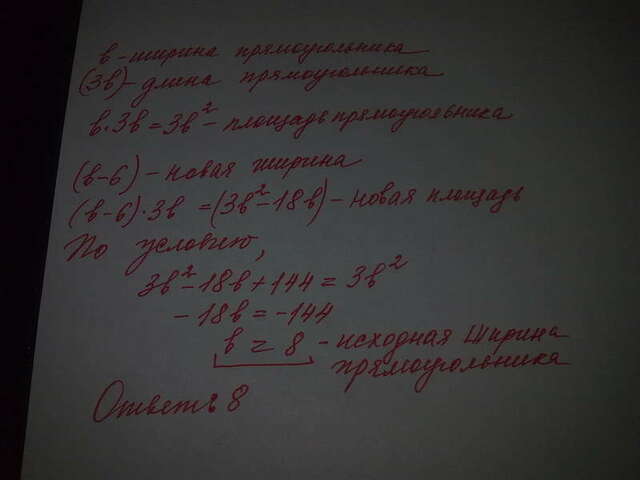 в - ширина прямоугольника
(3в) - длина прямоугольника
в·3в = 3в² - площадь прямоугоевника
(в-6) - новая ширина
(в-6)·3в = (3в²-18в) - новая площадь
По условию,
3в²-18в+144 = 3в²
-18в = -144
в = 8 - исходная ширина
прямоугольника
Ответ: 8